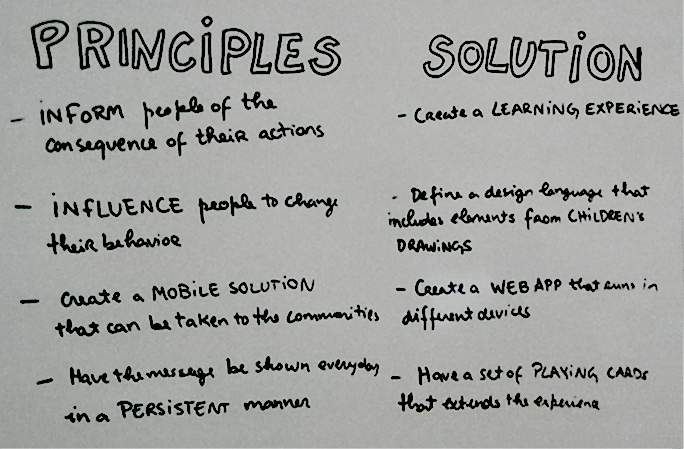 PRINCIPLES
- INFORM people of the
consequence of their actions
- INFLUENCE people to change
their behavior
- Create a MOBILE SOLUTION
that can be taken to the communities
- Have the message be shown everyday
in a PERSISTENT manner
SOLUTION
- Create a LEARNING EXPERIENCE
- Define a design language that
includes elements from CHILDREN'S
DRAWINGS
- Create a WEB APP that runs in
different devices
- Have a set of PLAYING CARDS
that extends the experience